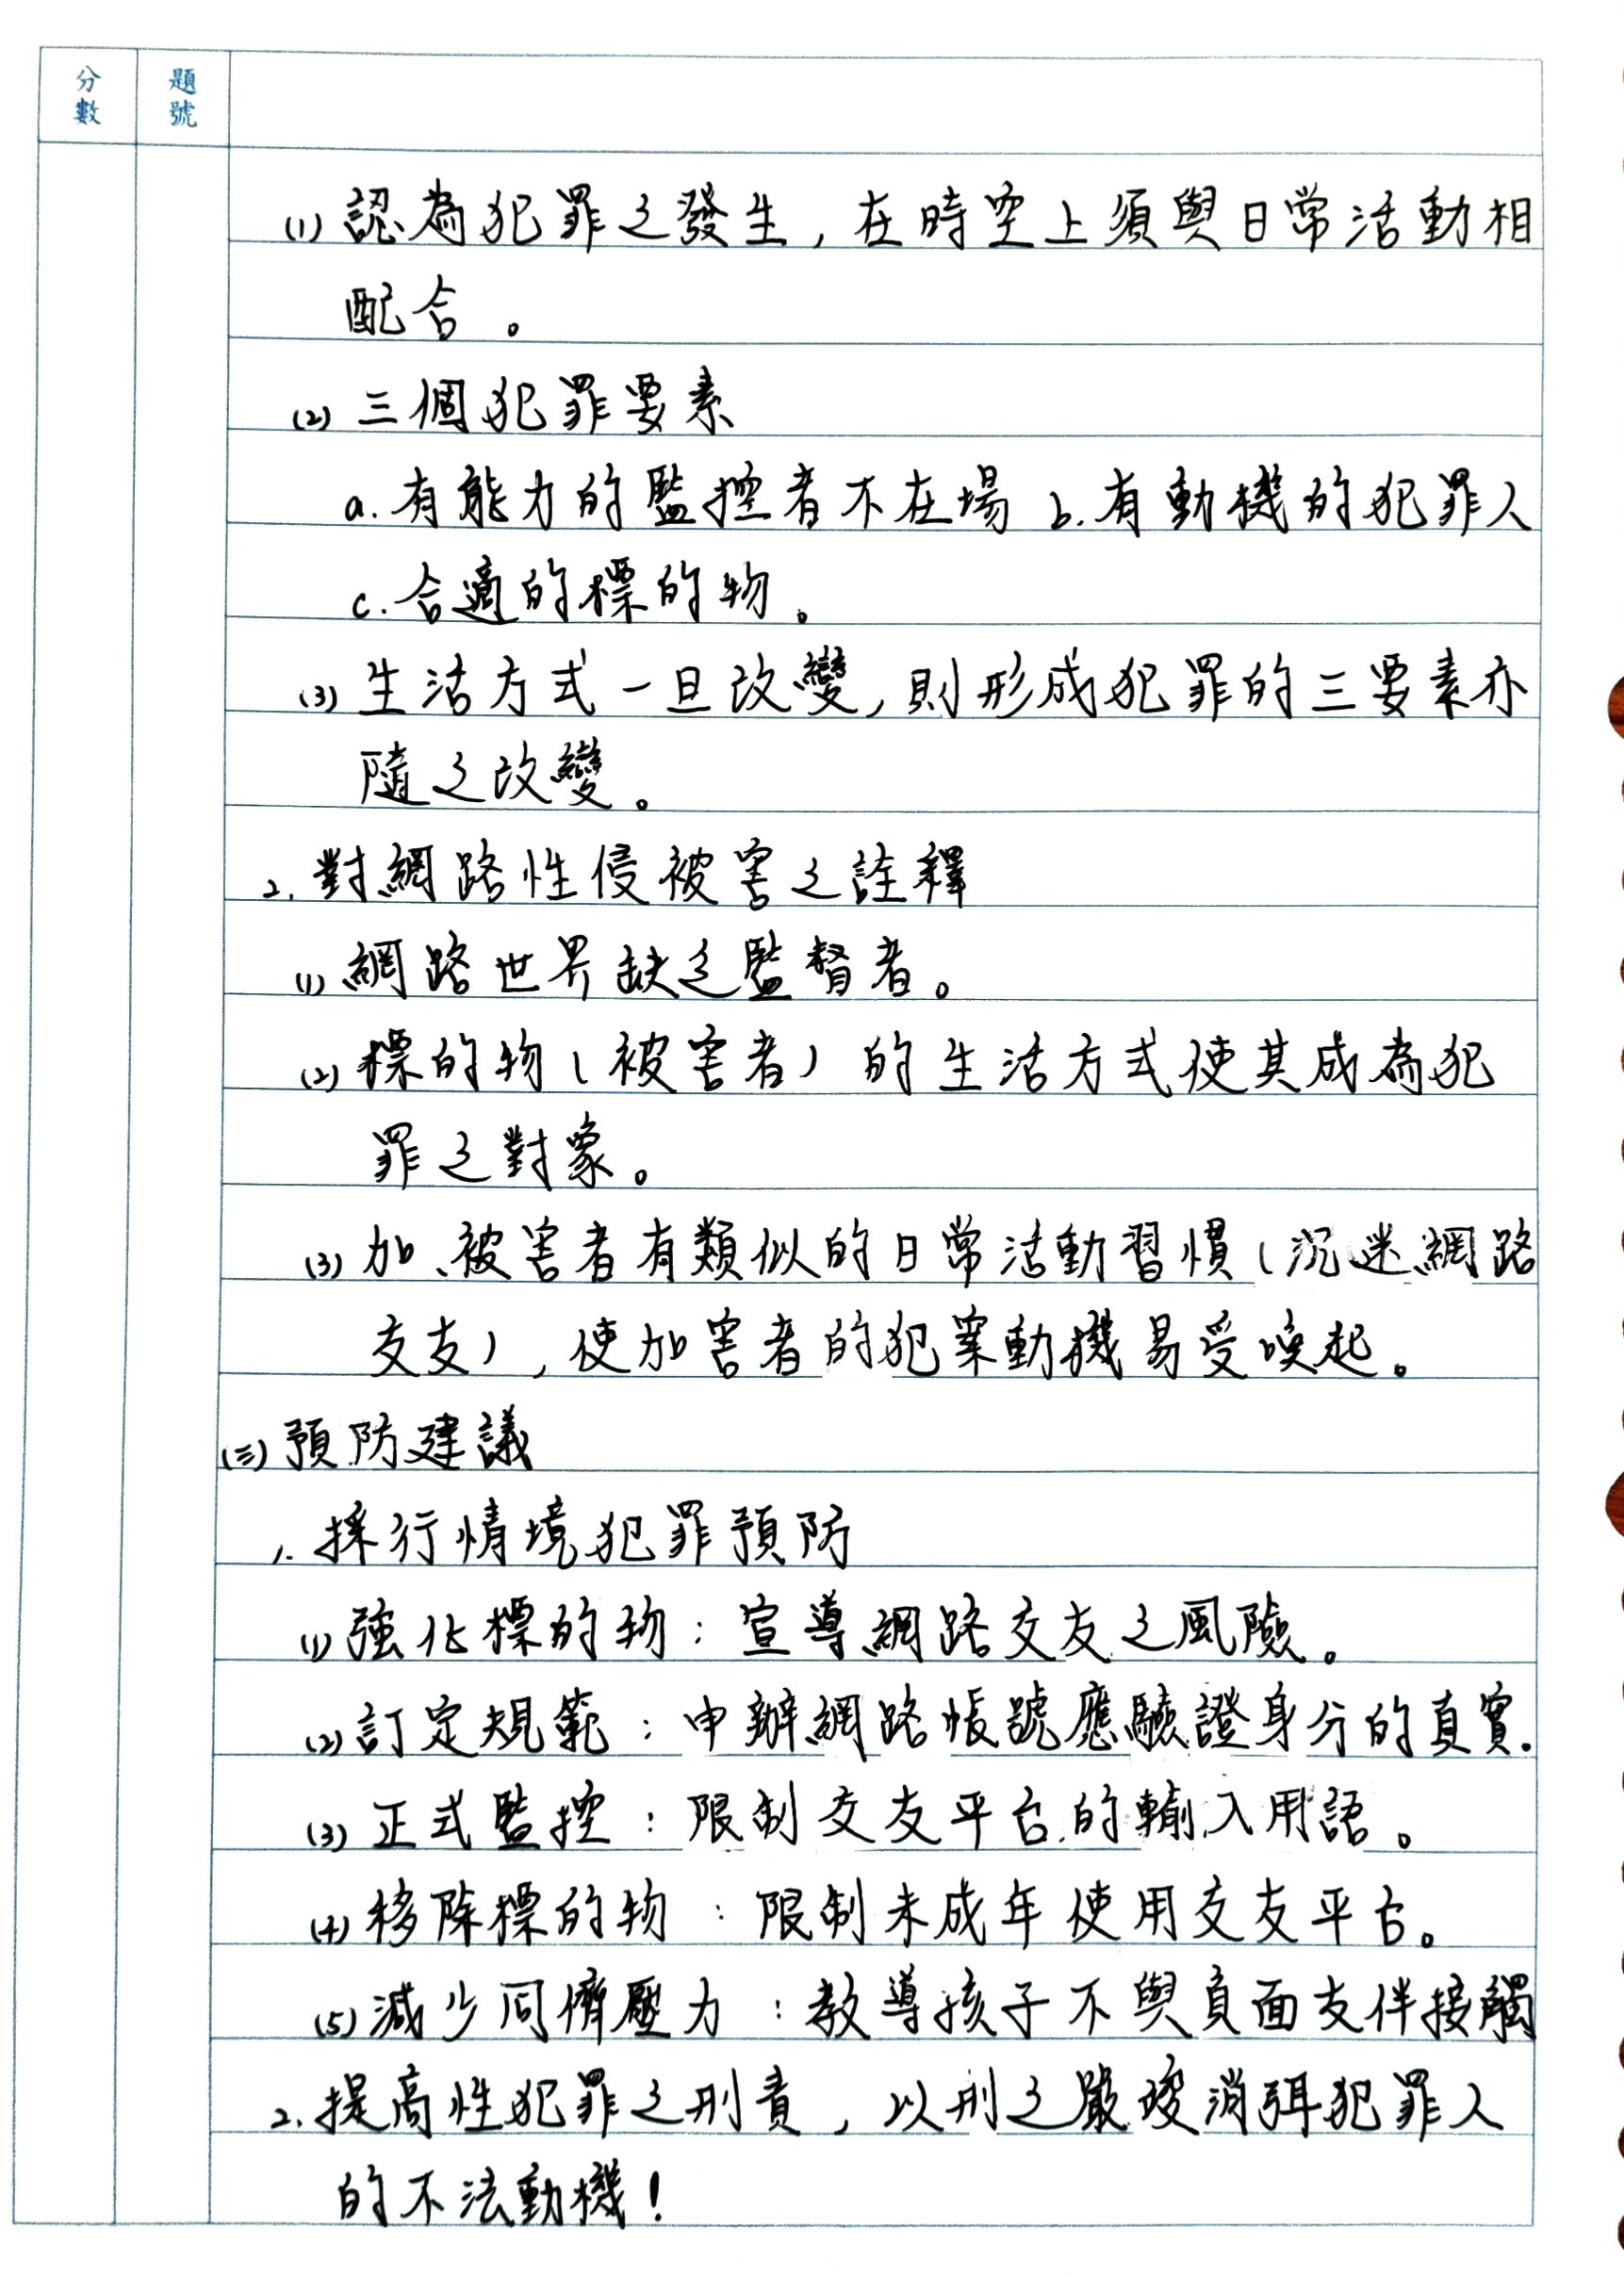 分數
題號
(1) 認為犯罪之發生，在時空上須與日常活動相
配合。
(2) 三個犯罪要素
a. 有能力的監控者不在場 b. 有動機的犯罪人
c. 合適的標的物。
(3) 生活方式一旦改變，則形成犯罪的三要素亦
隨之改變。
2. 對網路性侵被害之詮釋
(1) 網路世界缺乏監督者。
(2) 標的物(被害者)的生活方式使其成為犯
罪之對象。
(3) 加、被害者有類似的日常活動習慣(沉迷網路
交友)，使加害者的犯案動機易受喚起。
(三) 預防建議
1. 採行情境犯罪預防
(1) 強化標的物：宣導網路交友之風險。
(2) 訂定規範：申辦網路帳號應驗證身分的真實.
(3) 正式監控：限制交友平台的輸入用語。
(4) 移除標的物：限制未成年使用交友平台。
(5) 減少同儕壓力：教導孩子不與負面友伴接觸
2. 提高性犯罪之刑責，以刑之嚴峻消弭犯罪人
的不法動機！